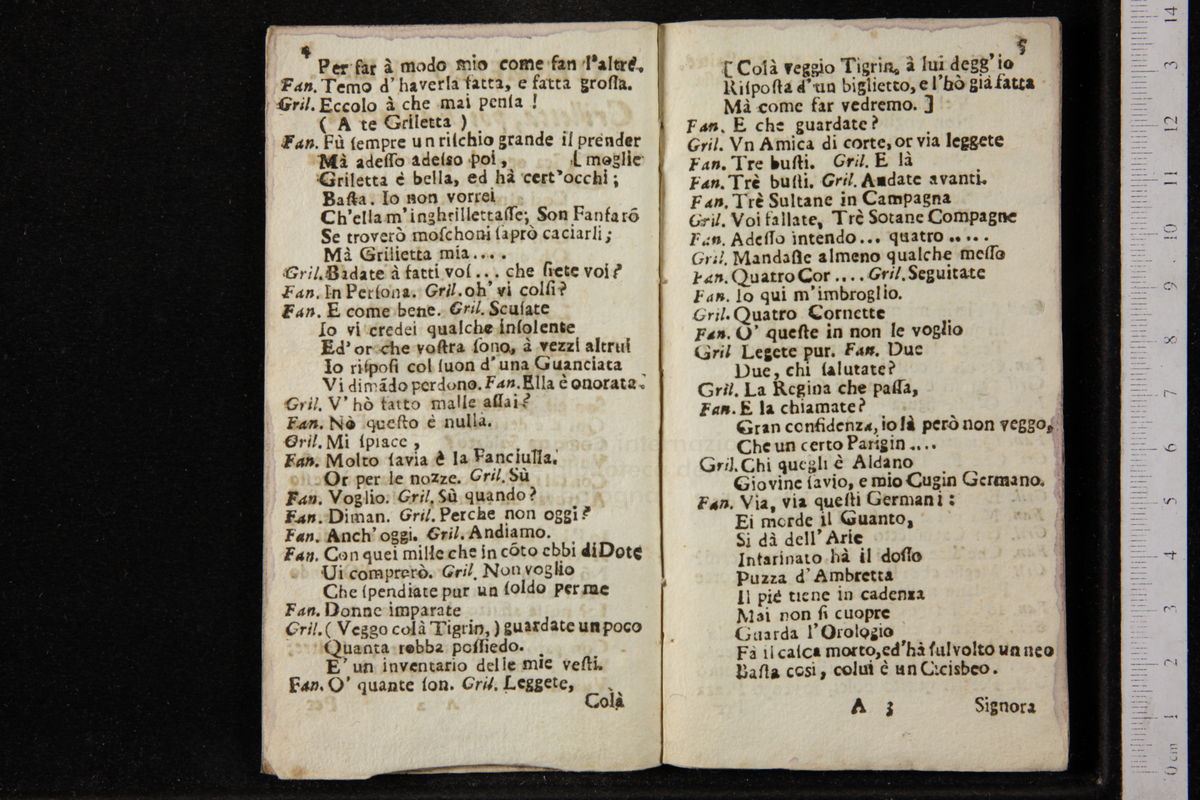 4
Per far à modo mio come fan l'altre.
Fan. Temo d'haverla fatta, e fatta groſſa.
Gril. Eccolo à che mai penſa !
( A te Griletta )
Fan. Fù ſempre un riſchio grande il prender
Mà adeſſo adeſso poi, [ moglie
Griletta è bella, ed hà cert'occhi ;
Baſta. Io non vorrei
Ch'ella m'inghrillettaſſe; Son Fanfarõ
Se troverò moſchoni ſaprò caciarli ;
Mà Grilietta mia ....
Gril. Badate à fatti voſ... che ſiete voi ?
Fan. In Perſona. Gril. oh' vi colſi ?
Fan. E come bene. Gril. Scuſate
Io vi credei qualche inſolente
Ed'or che voſtra ſono, à vezzi altrui
Io riſpoſi col ſuon d'una Guanciata
Vi dimãdo perdono. Fan. Ella è onorata.
Gril. V'hò fatto malle aſſai ?
Fan. Nò queſto è nulla.
Gril. Mi ſpiace ,
Fan. Molto ſavia è la Fanciulla.
Or per le nozze. Gril. Sù
Fan. Voglio. Gril. Sù quando ?
Fan. Diman. Gril. Perche non oggi ?
Fan. Anch'oggi. Gril. Andiamo.
Fan. Con quei mille che in cõto ebbi di Dote
Ui comprerò. Gril. Non voglio
Che ſpendiate pur un ſoldo per me
Fan. Donne imparate
Gril. ( Veggo colà Tigrin, ) guardate un poco
Quanta robba poſſiedo.
E' un inventario delle mie veſti.
Fan. O' quante ſon. Gril. Leggete,
Colà
5
[ Colà veggio Tigrin, à lui degg'io
Riſpoſta d'un biglietto, e l'hò già fatta
Mà come far vedremo. ]
Fan. E che guardate ?
Gril. Vn Amica di corte, or via leggete
Fan. Tre buſti. Gril. E là
Fan. Trè buſti. Gril. Andate avanti.
Fan. Trè Sultane in Campagna
Gril. Voi fallate, Trè Sotane Compagne
Fan. Adeſſo intendo... quatro .....
Gril. Mandaſſe almeno qualche meſſo
Fan. Quatro Cor .... Gril. Seguitate
Fan. Io qui m'imbroglio.
Gril. Quatro Cornette
Fan. O' queſte in non le voglio
Gril Legete pur. Fan. Due
Due, chi ſalutate ?
Gril. La Regina che paſſa,
Fan. E la chiamate ?
Gran confidenza, io là però non veggo,
Che un certo Parigin ....
Gril. Chi quegli è Aldano
Giovine ſavio, e mio Cugin Germano.
Fan. Via, via queſti Germani :
Ei morde il Guanto,
Si dà dell'Arie
Infarinato hà il doſſo
Puzza d'Ambretta
Il piè tiene in cadenza
Mai non ſi cuopre
Guarda l'Orologio
Fà il caſca morto, ed'hà ſul volto un neo
Baſta cosi, colui è un Cicisbeo.
A 3
Signora